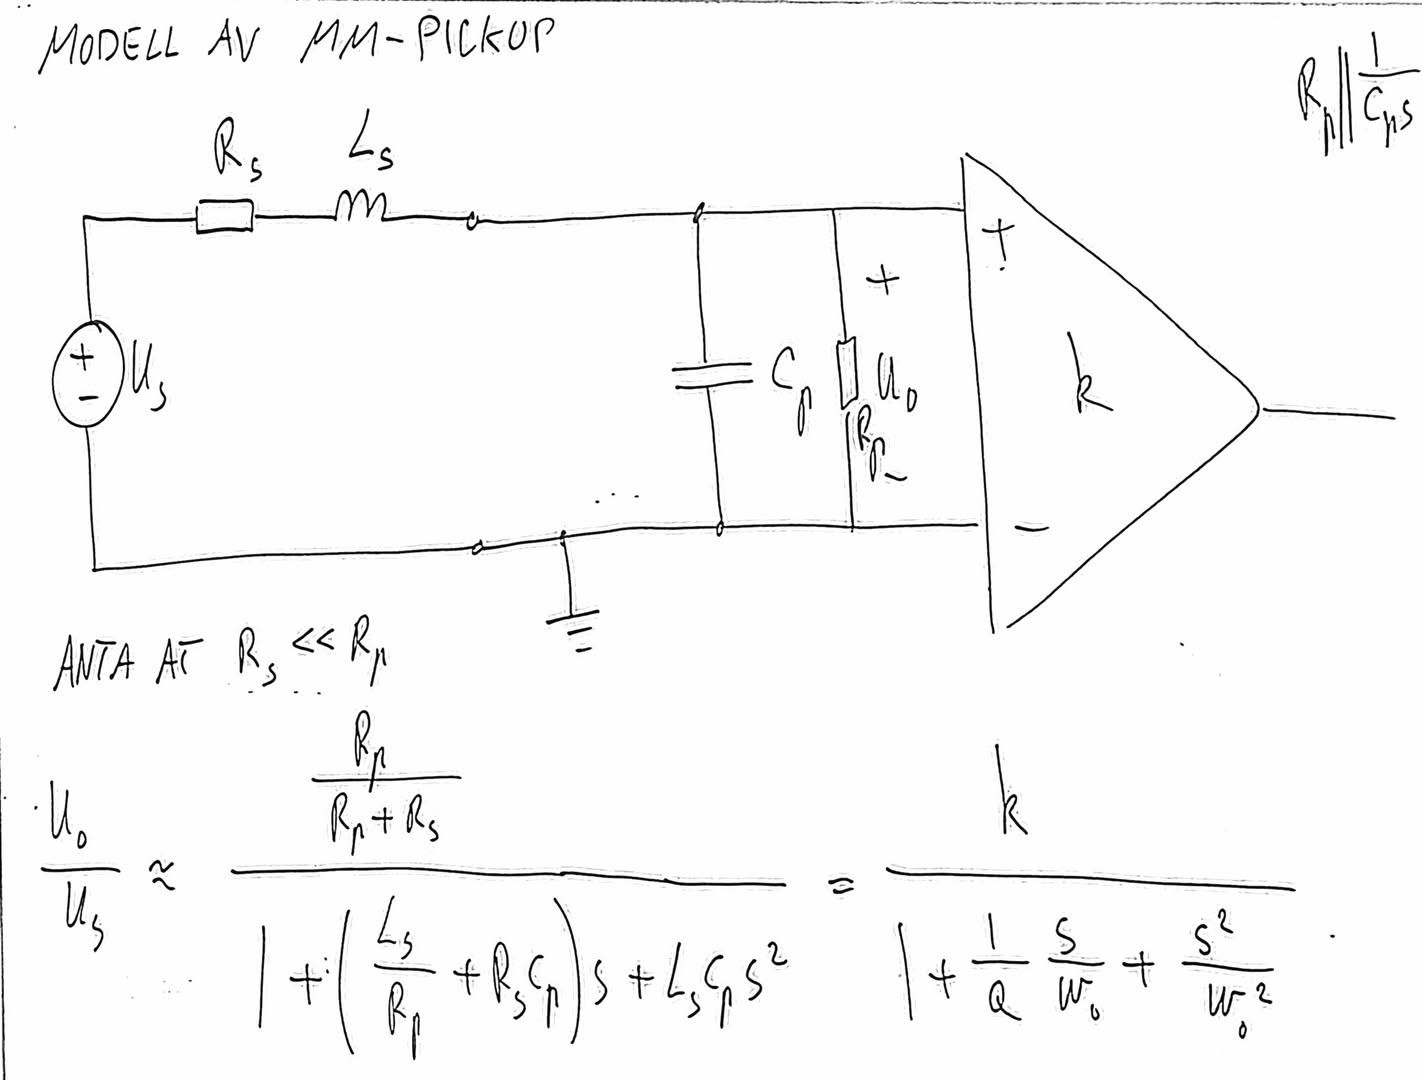 MODELL AV MM-PICKUP
R_p || 1/(C_p s)
R_s L_s
+
+
+ - U_s
C_p U_o k
R_p
-
-
...
ANTA AT R_s << R_p
U_o/U_s ≈ (R_p/(R_p + R_s))/(1 + (L_s/R_p + R_s C_p) s + L_s C_p s²) = k/(1 + 1/Q s/w_o + s²/w_o²)